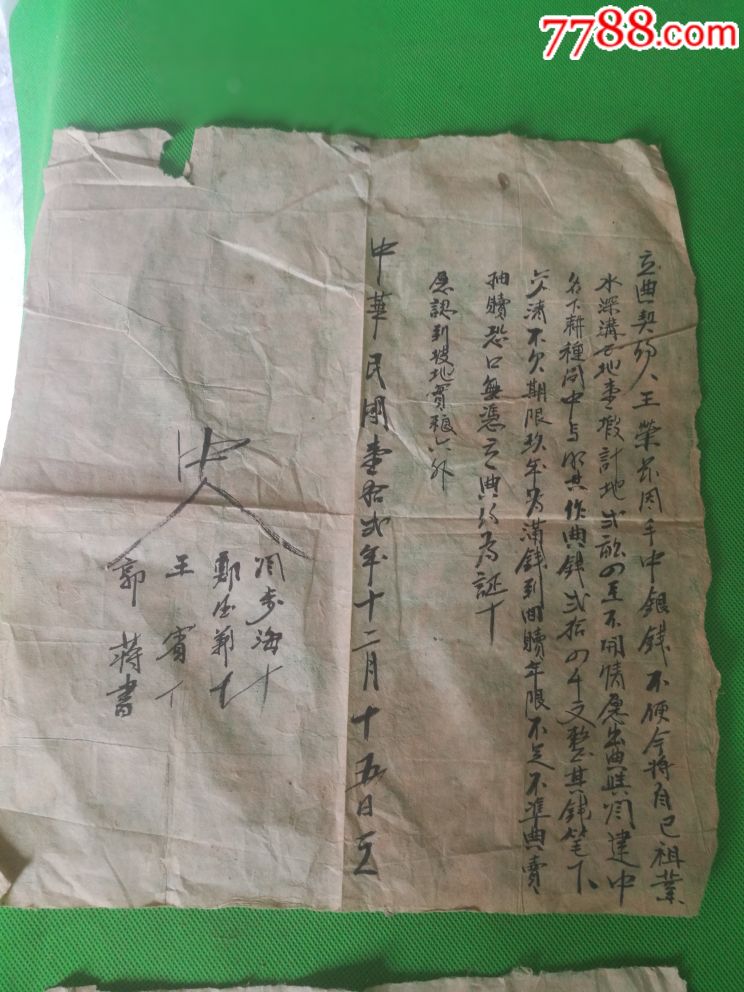 7788.com
立典契約人王榮 因手中銀錢不便今將自己祖業
水深溝 地壹塅計地弍畝四至不開情愿出典與 建中
名下耕種同中言明共作典錢弍拾四千文整其錢筆下
交清不欠期限玖年為滿錢到回贖年限不足不準典賣
抽贖恐口無憑立典約為証十
愿認到坡地實粮 外
中華民國壹拾弍年十二月十五日立
中人
 步海十
鄭 十
王賓
郭蔣書